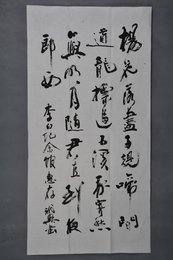 楊花落盡子規啼聞
道龍標過五溪我寄愁心
與明月隨君直到夜
郎西
李白纪念馆惠存